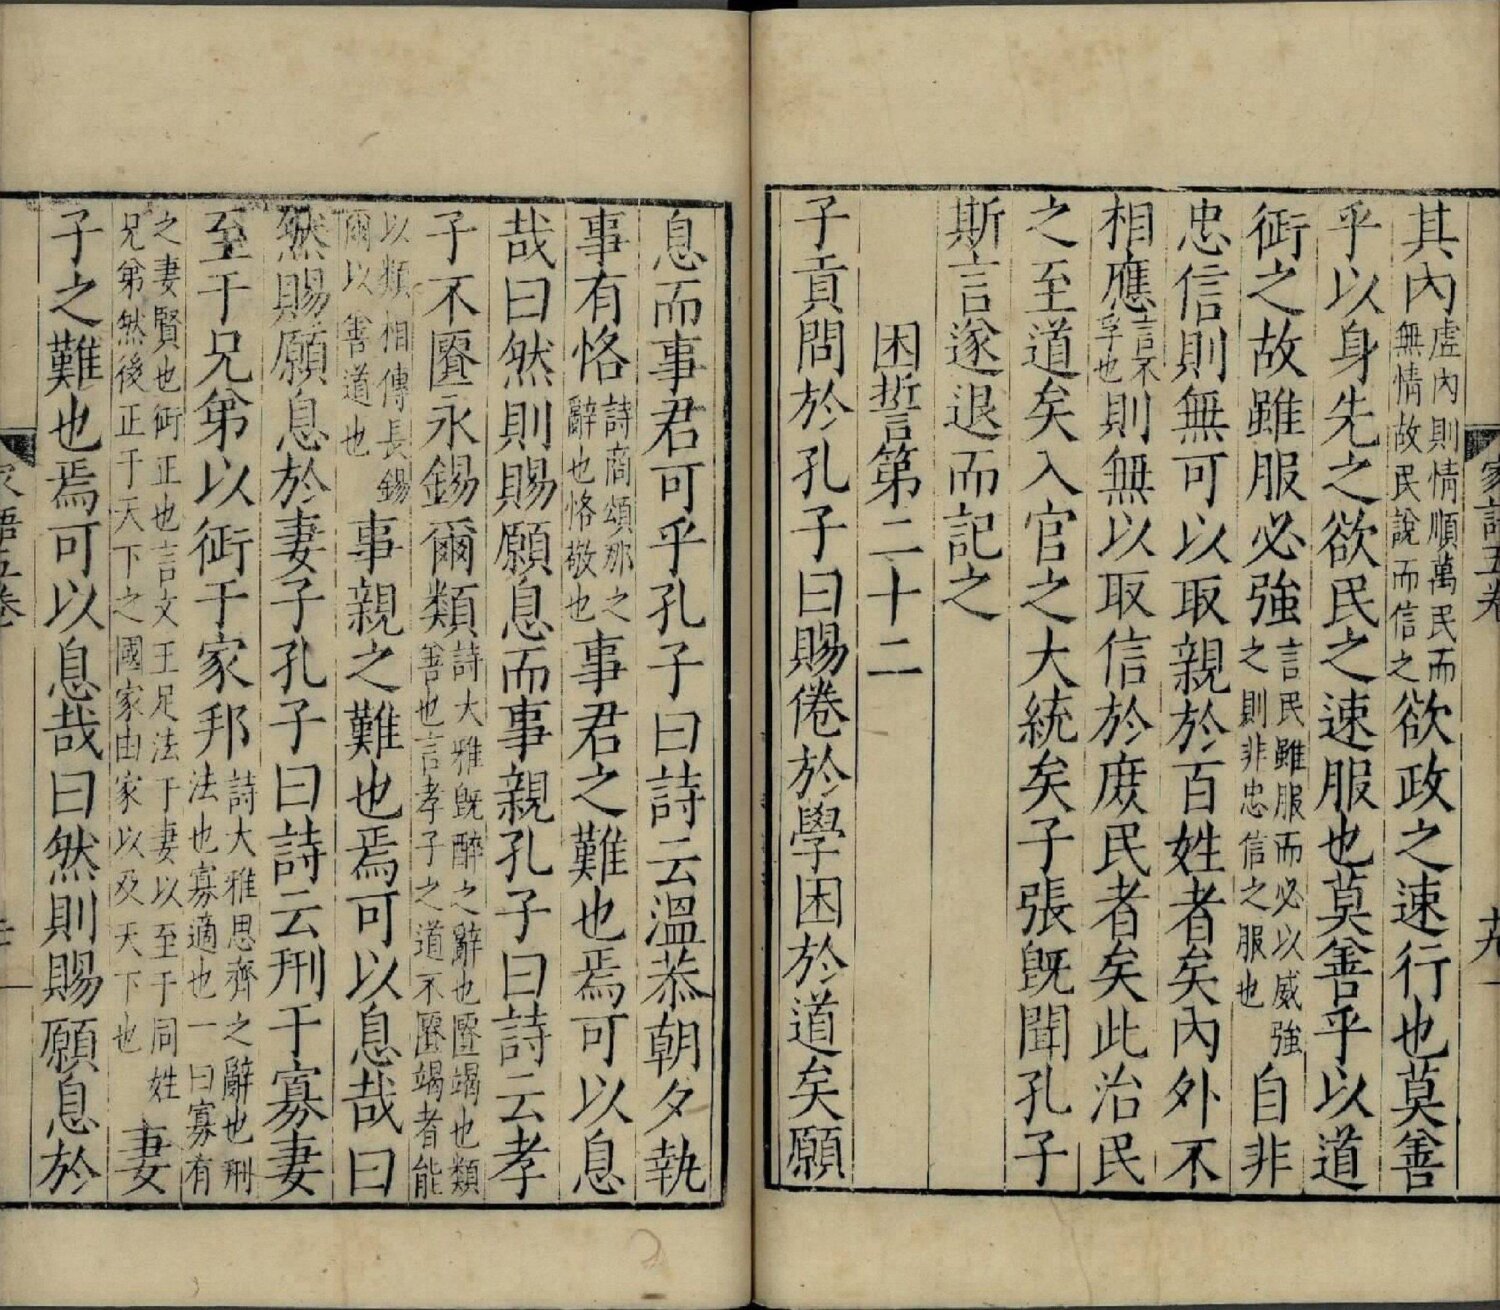 其內虛內則情順萬民而無情故民說而信之欲政之速行也莫善
乎以身先之欲民之速服也莫善乎以道
御之故雖服必強言民雖服而必以威強之則非忠信之服也自非
忠信則無可以取親於百姓者矣內外不
相應言不孚也則無以取信於庶民者矣此治民
之至道矣入官之大統矣子張既聞孔子
斯言遂退而記之
困誓第二十二
子貢問於孔子曰賜倦於學困於道矣願
息而事君可乎孔子曰詩云溫恭朝夕執
事有恪詩商頌那之辭也恪敬也事君之難也焉可以息
哉曰然則賜願息而事親孔子曰詩云孝
子不匱永錫爾類詩大雅既醉之辭也匱竭也類善也言孝子之道不匱竭者能
以類相傳長錫爾以善道也事親之難也焉可以息哉曰
然賜願息於妻子孔子曰詩云刑于寡妻
至于兄弟以御于家邦詩大雅思齊之辭也刑法也寡適也一曰寡有
之妻賢也御正也言文王足法于妻以至于同姓兄弟然後正于天下之國家由家以及天下也妻
子之難也焉可以息哉曰然則賜願息於
家語五卷
十九
家語五卷